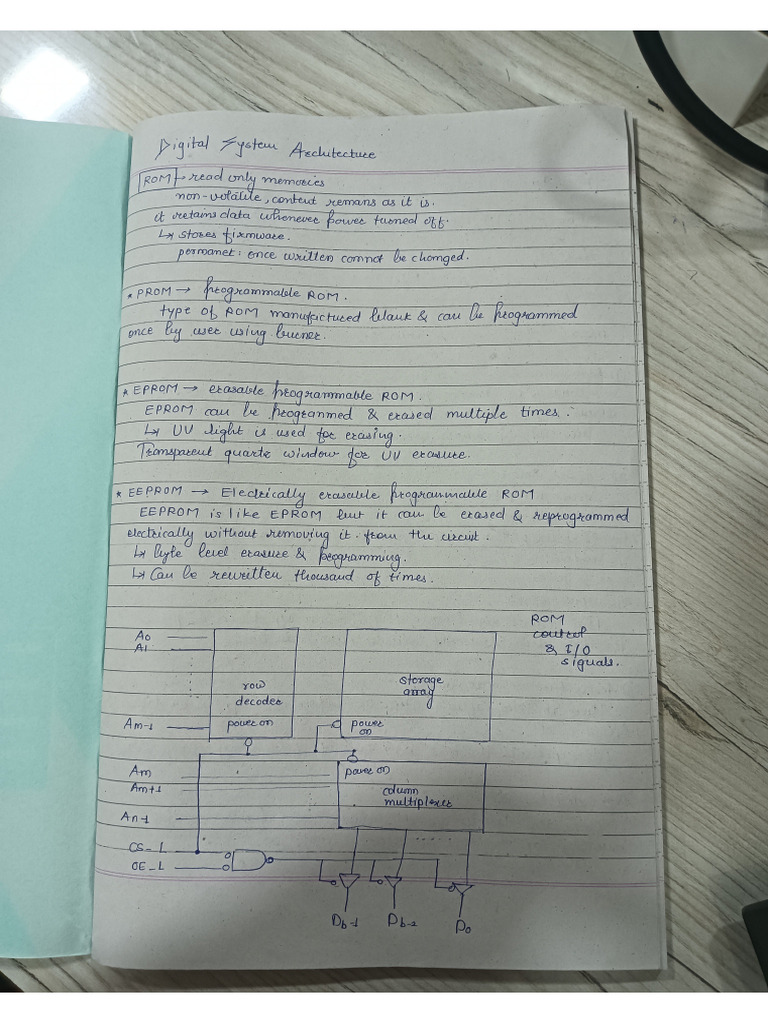 Digital System Architecture
ROM → read only memories
non-volatile, content remans as it is.
it retains data whenever power turned off.
↳ stores firmware.
permanet: once written connot be changed.
* PROM → programmable ROM.
type of ROM manufactured blank & can be programmed
once by user using burner.
* EPROM → erasable programmable ROM.
EPROM can be programmed & erased multiple times.
↳ UV light is used for erasing.
Transparent quartz window for UV erasure.
* EEPROM → Electrically erasable programmable ROM
EEPROM is like EPROM but it can be erased & reprogrammed
electrically without removing it from the circuit.
↳ byte level erasure & programming.
↳ Can be rewritten thousand of times.
ROM
control
& I/O
signals.
A0
A1
Am-1
row
decoder
power on
storage
array
power
on
Am
Am+1
An-1
power on
column
multiplexer
CS_L
OE_L
Db-1 Db-2 D0